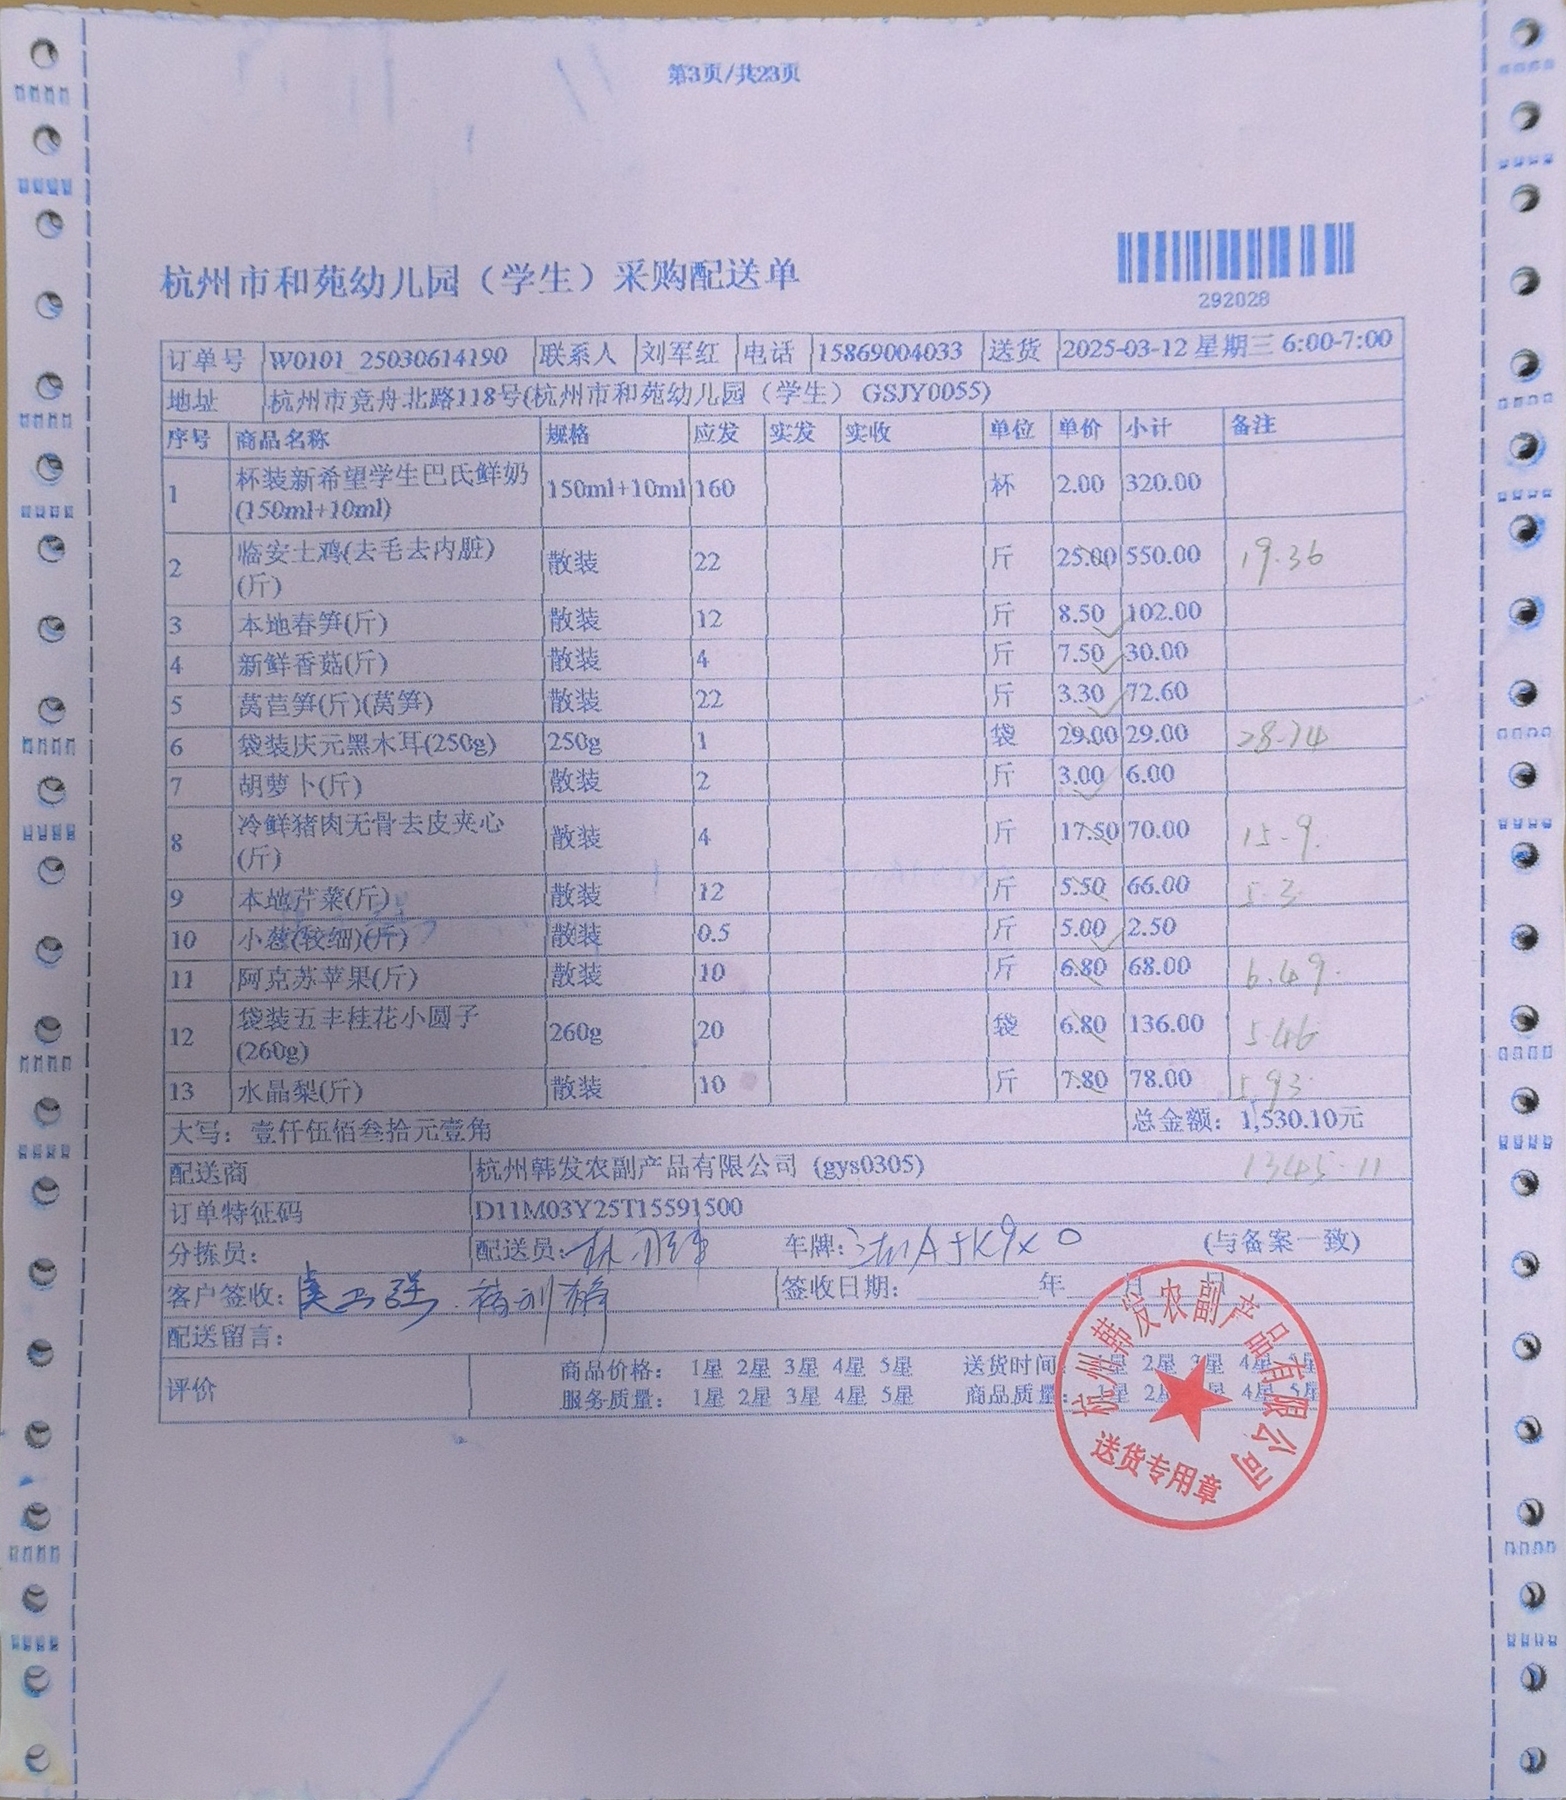 第3页/共23页
杭州市和苑幼儿园（学生）采购配送单
292028
订单号 W0101_25030614190 联系人 刘军红 电话 15869004033 送货 2025-03-12 星期三 6:00-7:00
地址 杭州市竞舟北路118号(杭州市和苑幼儿园（学生） GSJY0055)
序号 商品名称 规格 应发 实发 实收 单位 单价 小计 备注
1 杯装新希望学生巴氏鲜奶(150ml+10ml) 150ml+10ml 160 杯 2.00 320.00
2 临安土鸡(去毛去内脏)(斤) 散装 22 斤 25.00 550.00 19.36
3 本地春笋(斤) 散装 12 斤 8.50 102.00
4 新鲜香菇(斤) 散装 4 斤 7.50 30.00
5 莴苣笋(斤)(莴笋) 散装 22 斤 3.30 72.60
6 袋装庆元黑木耳(250g) 250g 1 袋 29.00 29.00 28.74
7 胡萝卜(斤) 散装 2 斤 3.00 6.00
8 冷鲜猪肉无骨去皮夹心(斤) 散装 4 斤 17.50 70.00 15.9
9 本地芹菜(斤) 散装 12 斤 5.50 66.00 5.3
10 小葱(较细)(斤) 散装 0.5 斤 5.00 2.50
11 阿克苏苹果(斤) 散装 10 斤 6.80 68.00 6.49
12 袋装五丰桂花小圆子(260g) 260g 20 袋 6.80 136.00 5.46
13 水晶梨(斤) 散装 10 斤 7.80 78.00 5.93
大写：壹仟伍佰叁拾元壹角 总金额：1,530.10元
配送商 杭州韩发农副产品有限公司 (gys0305) 1345.11
订单特征码 D11M03Y25T15591500
分拣员： 配送员： 车牌： (与备案一致)
客户签收： 签收日期： 年 月 日
配送留言：
评价 商品价格： 1星 2星 3星 4星 5星 送货时间： 1星 2星 3星 4星 5星
服务质量： 1星 2星 3星 4星 5星 商品质量： 1星 2星 3星 4星 5星
杭州韩发农副产品有限公司
送货专用章